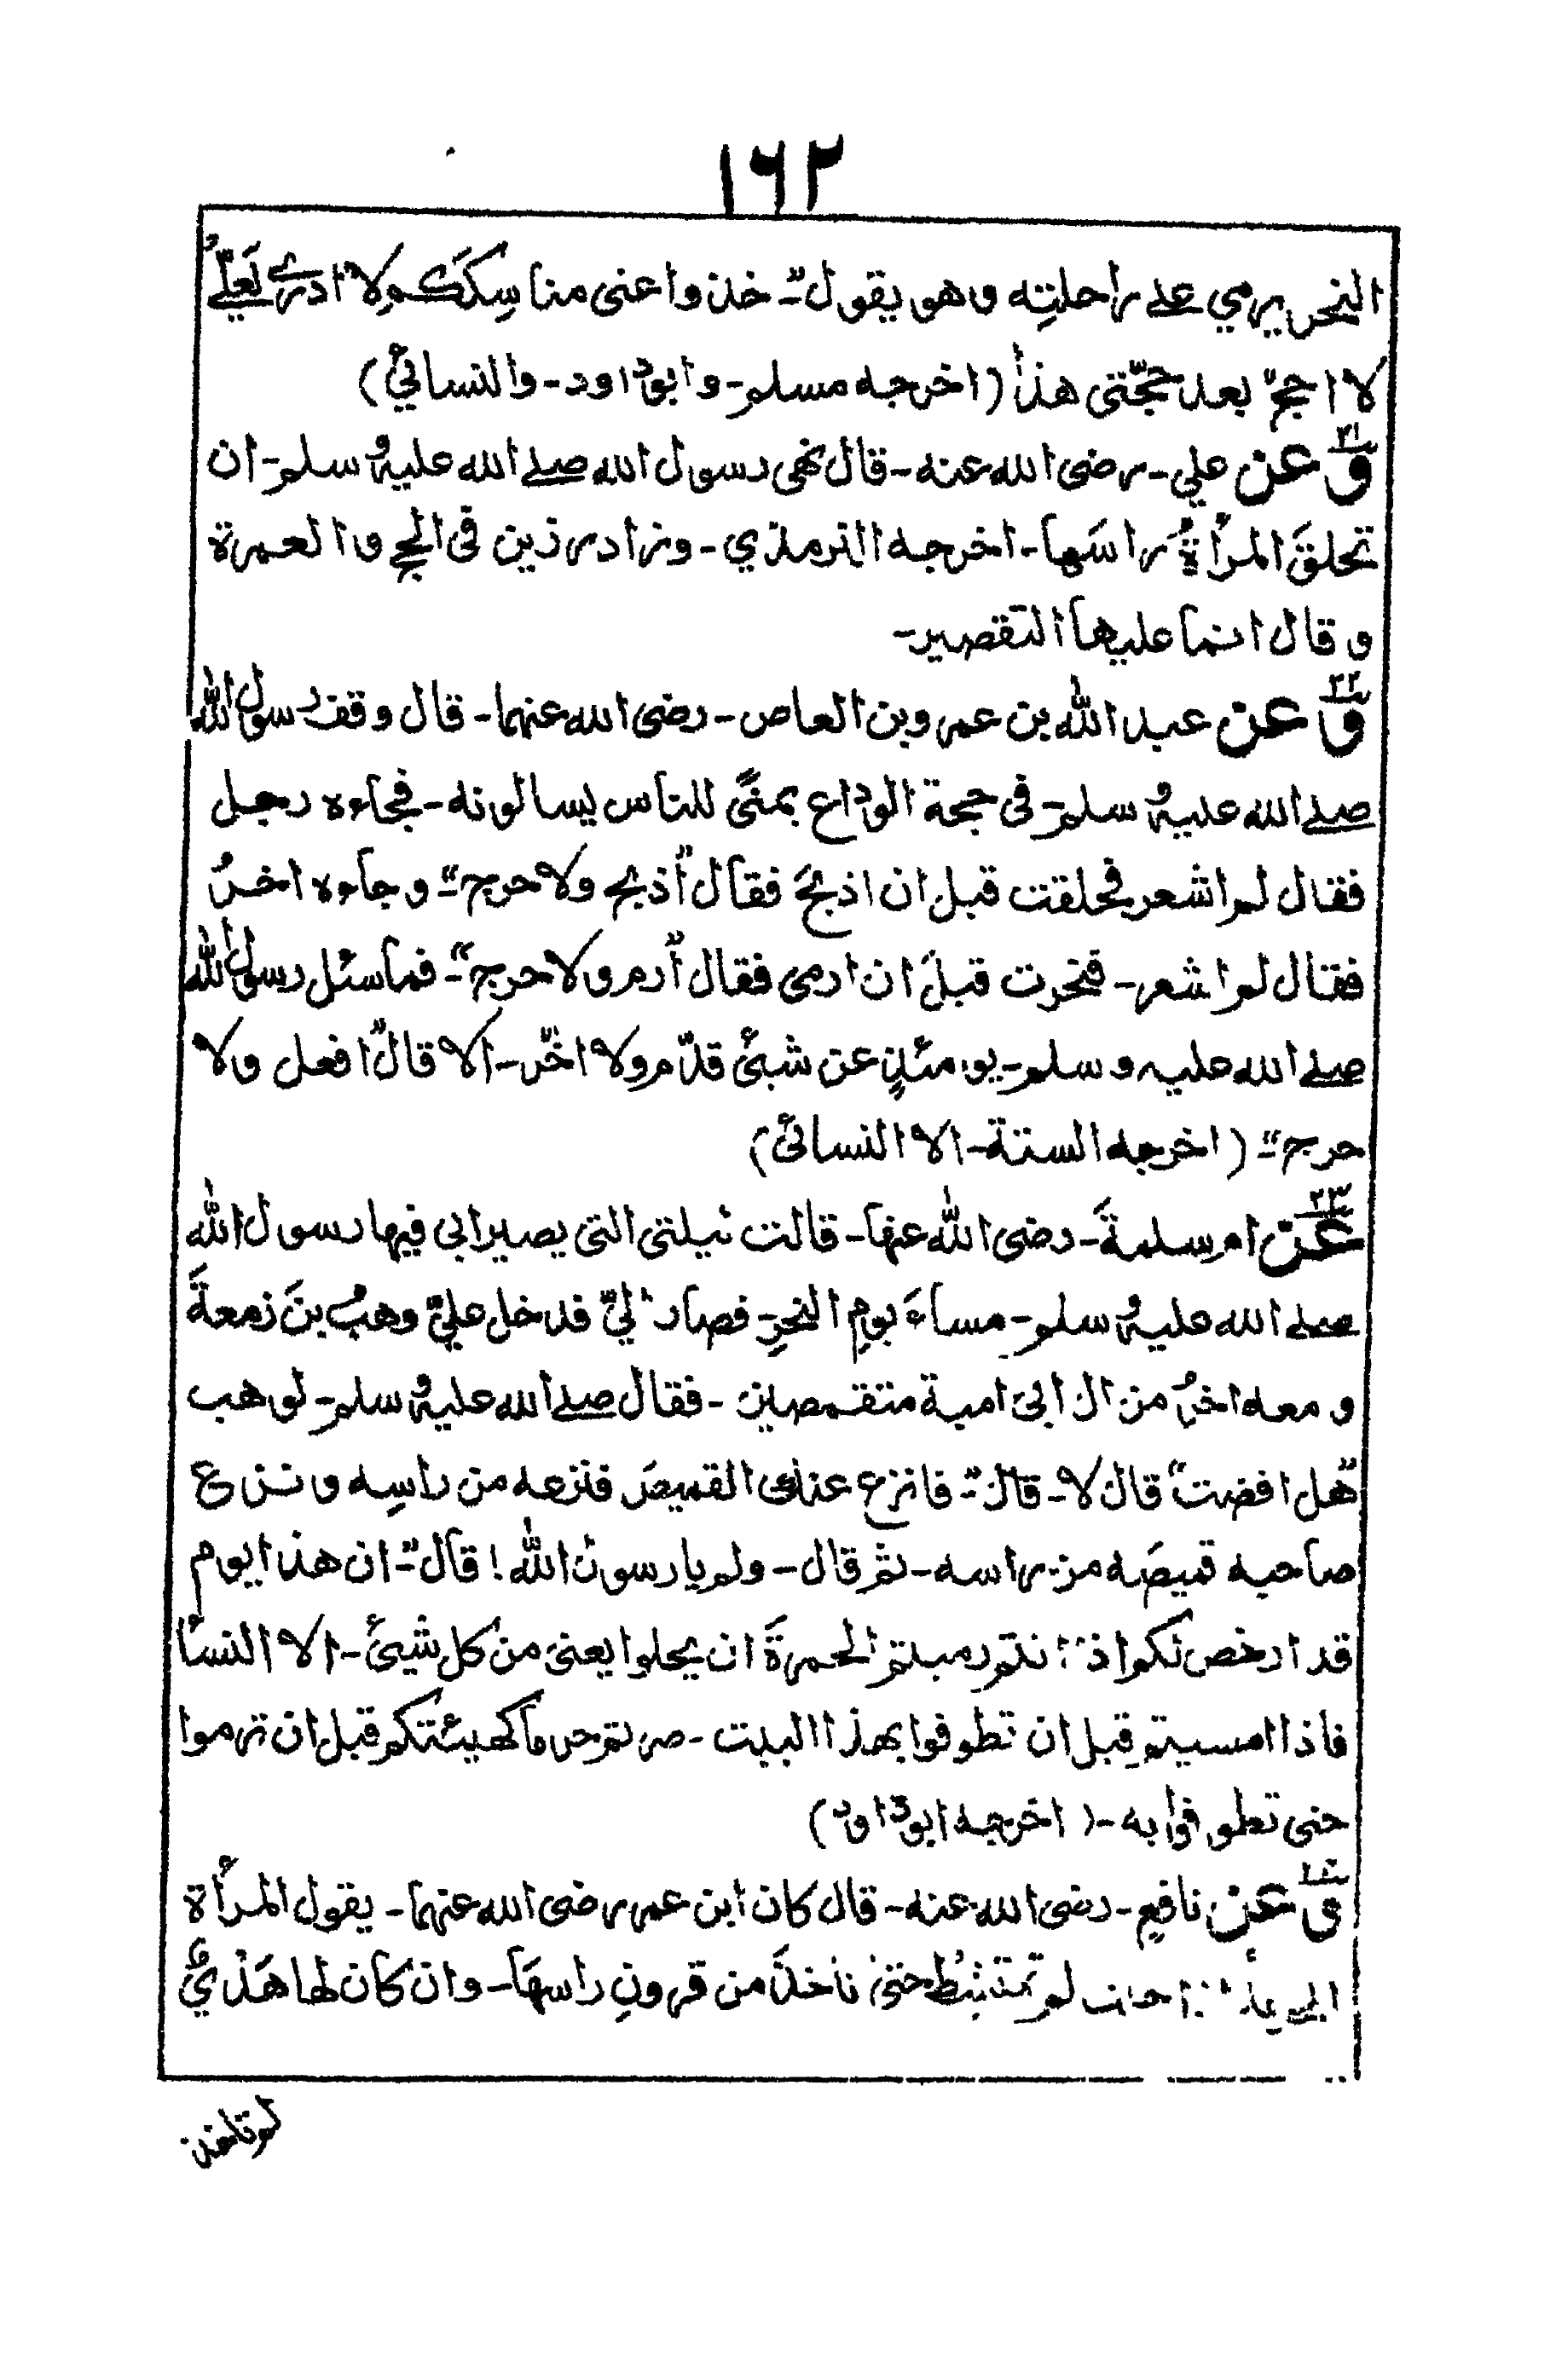 ١٦٢
النحر يرمي على راحلتِه وهو يقول"- خذوا عنى مناسِكَكم ولا ادرى لَعَلّيُ
لا احجّ بعد حجّتى هذا (اخرجه مسلم- وابوداود- والنسائي)
٣١ وعن علي- رضى الله عنه- قال نهى رسول الله صلى الله عليه وسلم- ان
تحلقَ المرأةُ راسَها- اخرجه الترمذي- وزاد رزين فى الحج والعمرة
وقال انما عليها التقصير-
٣٢ وعن عبد الله بن عمرو بن العاص- رضى الله عنهما- قال وقف رسول الله
صلى الله عليه وسلم- فى حجة الوداع بمنًى للناس يسالونه- فجاءه رجل
فقال لم اشعر فحلقت قبل ان اذبحَ فقال "اُذبح ولا حرج"- وجاءه اخرُ
فقال لم اشعر- فنحرت قبلَ ان ارمى فقال "اُرم ولا حرج"- فما سئل رسول الله
صلى الله عليه وسلم- يومئذٍ عن شيئ قدّم ولا اخّر- الا قال "افعل ولا
حرج"- (اخرجه الستة- الا النسائى)
٣٣ عن ام سلمةَ- رضى الله عنها- قالت ليلتى التى يصير الي فيها رسول الله
صلى الله عليه وسلم- مساءَ يومِ النحرِ- فصار اليّ فدخل عليّ وهبُ بنَ زمعةَ
ومعه اخرُ من ال ابى امية متقمصين- فقال صلى الله عليه وسلم- لوهب
"هل افضت" قال لا- قال"- فانزع عنك القميصَ فنزعه من راسِه ونزع
صاحبه قميصَه من راسه- ثم قال- ولم يا رسول الله! قال"- ان هذا يوم
قد ارخص لكم اذا انتم رميتم الجمرةَ ان يحلوا يعنى من كل شيئ- الا النسا
فاذا امسيتم قبل ان تطوفوا بهذا البيت- صرتم حرما كهيئتكم قبل ان ترموا
حتى تطوفوا به- (اخرجه ابوداود)
وعن نافع- رضى الله عنه- قال كان ابن عمر رضى الله عنهما- يقول المرأة
لم تمتشطْ حتى تأخذَ من قرونِ راسِهَا- وان كان لها هَدْيٌ